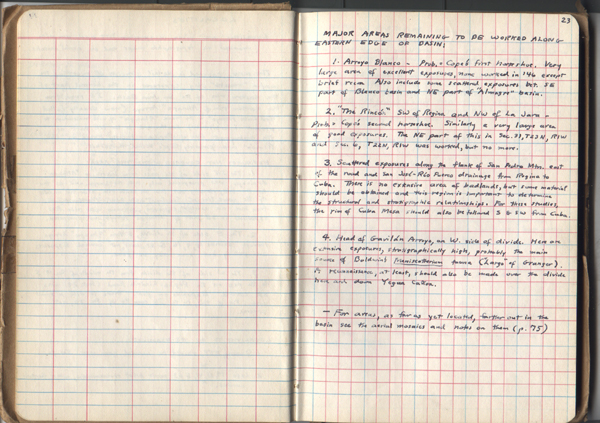 23
MAJOR AREAS REMAINING TO BE WORKED ALONG
EASTERN EDGE OF BASIN:
1. Arroyo Blanco - Prob. = Cope's first horseshoe. Very
large area of excellent exposures, none worked in '46 except
brief recon. Also include some scattered exposures bet. SE
part of Blanco basin and NE part of "Almagre" basin.
2. "The Rincó." SW of Regina and NW of La Jara -
Prob. = Cope's second horseshoe. Similarly a very large area
of good exposures. The NE part of this in Sec. 33, T23N, R1W
and Sec. 6, T22N, R1W was worked, but no more.
3. Scattered exposures along the flank of San Pedro Mtn. east
of the road and San José-Río Puerco drainage from Regina to
Cuba. There is no extensive area of badlands, but some material
should be obtained and this region is important to determine
the structural and stratigraphic relationships. For these studies,
the rim of Cuba Mesa should also be followed S & SW from Cuba.
4. Head of Gavilán Arroyo, on W. side of divide. Here are
extensive exposures, stratigraphically high, probably the main
source of Baldwin's fauna ("Largo" of Granger).
A reconnaissance, at least, should also be made over the divide
here and down Yegua Cañon.
- For areas, as far as yet located, farther out in the
basin see the aerial mosaics and notes on them (p. 75)